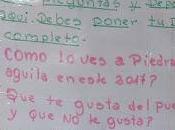 Preguntas y Dep
aqui. Debes poner tu
completo.
Como lo ves a Piedra
aguila en este 2017?
Que te gusta del pue
y que no te gusta?